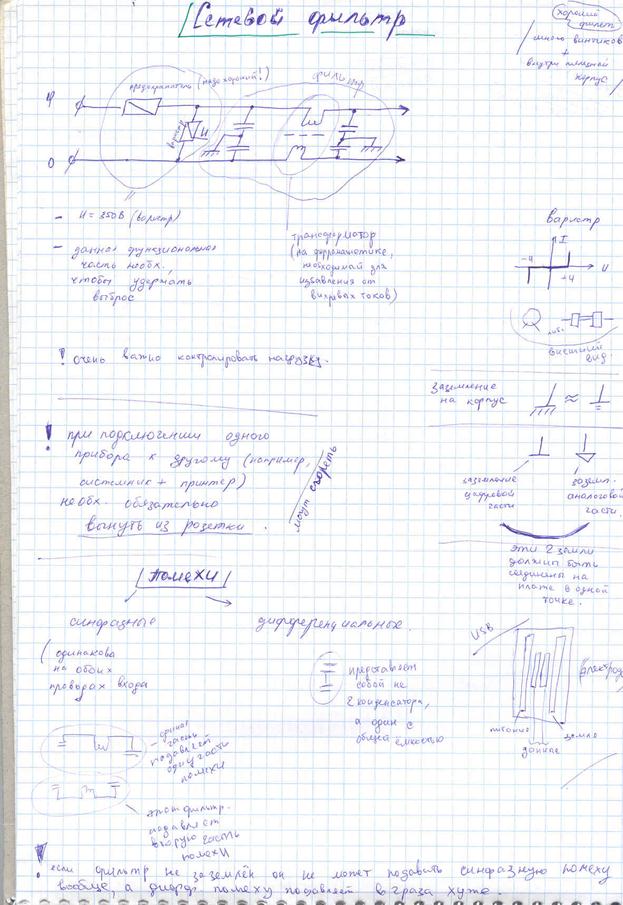 Сетевой фильтр
хороший фильтр
много винтиков
+
внутри
корпус
предохранитель (недохороший!)
фильтр
φ
варистр
U
0
- U = 350 В (варистр)
- данная функциональная
часть необх.
чтобы удержать
выброс
трансформатор
(на ферромагнетике,
необходимый для
избавления от
вихревых токов)
варистр
I
-U
U
+U
либо
внешний
вид.
! очень важно контролировать нагрузку.
заземление
на корпус
≈
! при подключении одного
прибора к другому (например,
системник + принтер)
необх. обязательно
вынуть из розетки.
могут сгореть
заземление
цифровой
части
зазем.
аналоговой
части.
эти 2 земли
должны быть
соединены на
плате в одной
точке.
Помехи
синфазные
дифференциальные.
(одинакова
на обоих
проводах входа
представляет
собой не
2 конденсатора,
а один с
общей ёмкостью
USB
питание
земля
данные
- данная
часть
подавляет
одну часть
помехи
этот фильтр.
подавляет
вторую часть
помехи
! если фильтр не заземлён он не может подавать синфазную помеху
вообще, а дифф. помеху подавляет в раза хуже.